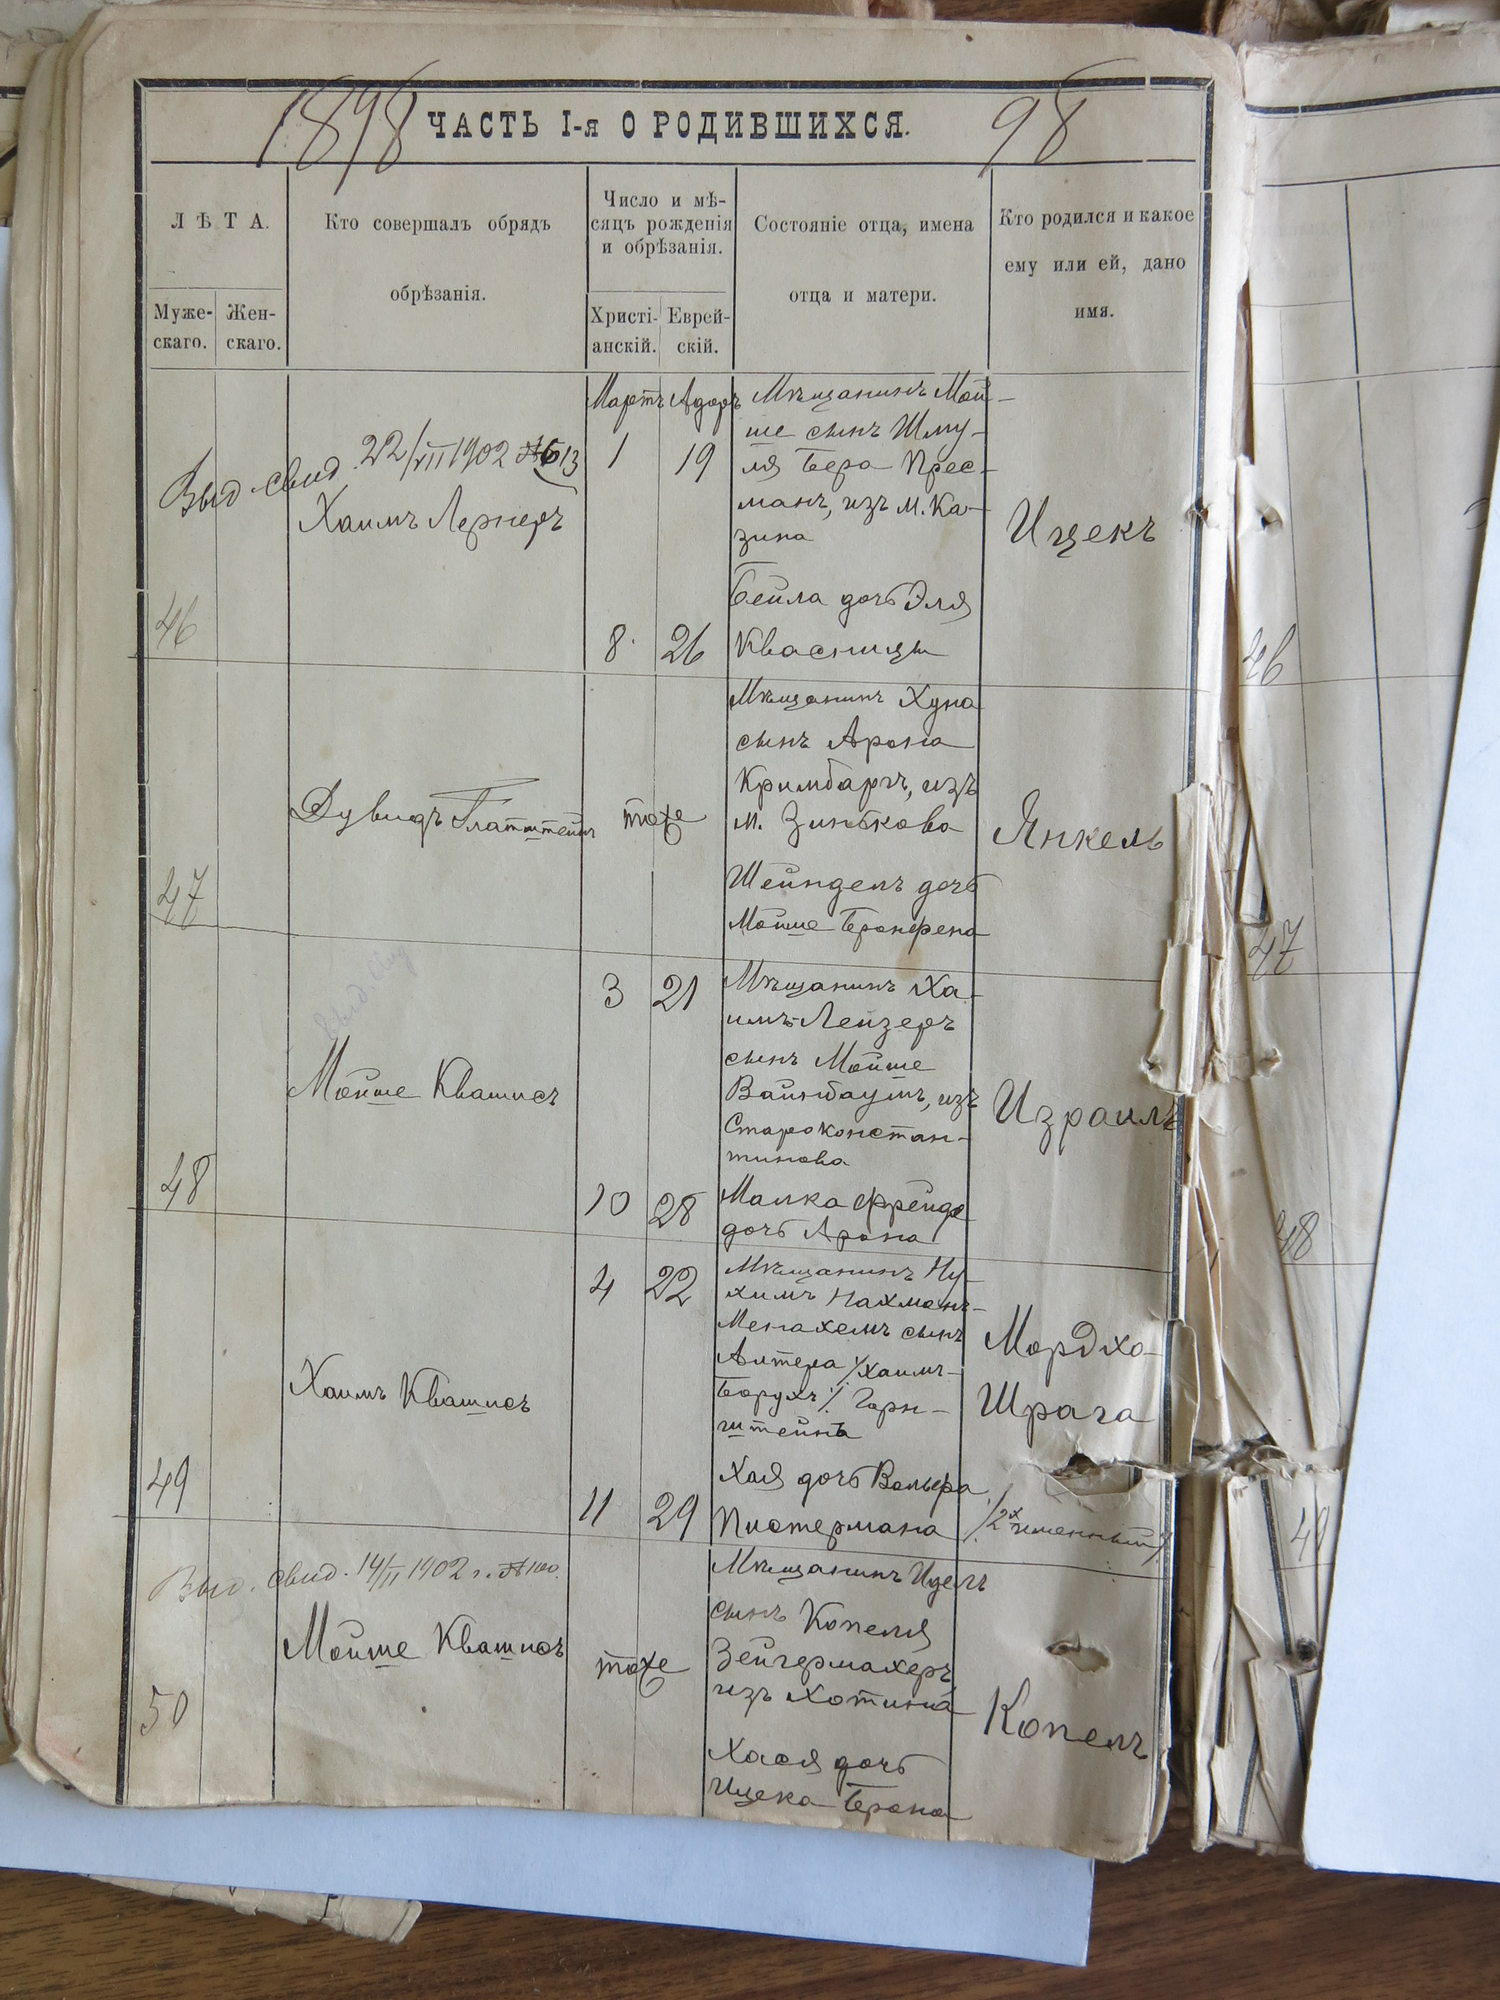 1898 ЧАСТЬ I-я О РОДИВШИХСЯ. 98
ЛѢТА.
Муже-
скаго.
Жен-
скаго.
Кто совершалъ обрядъ
обрѣзанія.
Число и мѣ-
сяцъ рожденія
и обрѣзанія.
Христі-
анскій.
Еврей-
скій.
Состояніе отца, имена
отца и матери.
Кто родился и какое
ему или ей, дано
имя.
46
Выд. свид. 22/VII 1902 № 613
Хаимъ Лернеръ
Мартъ Адаръ
1 19
8 26
Мѣщанинъ Мой-
ше сынъ Шму-
ля Бера Прес-
манъ, изъ м. Ка-
зина
Бейла дочь Эля
Квасницы
Ицекъ
46
47
Дувидъ Глатштейнъ
тоже
Мѣщанинъ Хуна
сынъ Арона
Кримбаргъ, изъ
м. Зинькова
Шейндель дочь
Мойше Бронфена
Янкель
47
48
Выд. свид
Мойше Квашисъ
3 21
10 28
Мѣщанинъ Ха-
имъ-Лейзеръ
сынъ Мойше
Вайнбаумъ, изъ
Староконстан-
тинова
Малка Фрейда
дочь Арона
Израиль
48
49
Хаимъ Квашисъ
4 22
11 29
Мѣщанинъ Ну-
химъ Нахманъ-
Менахемъ сынъ
Алтера /Хаимъ-
Борухъ/ Горн-
штейнъ
Хая дочь Вольфа
Пистермана
Мордхо-
Шрага
/2х именный/
49
50
Выд. свид. 14/II 1902 г. № 100.
Мойше Квашисъ
тоже
Мѣщанинъ Идель
сынъ Копеля
Зейгермахеръ
изъ Хотина
Хася дочь
Ицека Брона
Копель